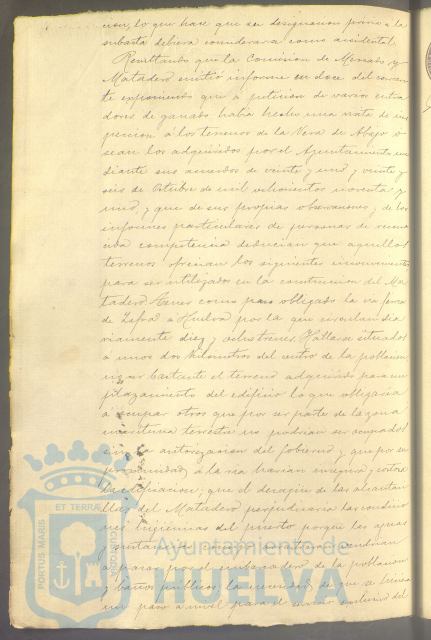 cion, lo que hace que su designacion previa a la
subasta debiera considerarse como accidental.
Resultando que la Comision de Mercado y
Matadero emitió informe en doce del corrien
te exponiendo que a peticion de varios entra
dores de ganado habia hecho una visita de ins
peccion á los terrenos de la Vega de Abajo o
sean los adquiridos por el Ayuntamiento me
diante sus acuerdos de veinte y uno y veinte y
seis de Octubre de mil ochocientos noventa y
uno, y que de sus propias observaciones y de los
informes particulares de personas de recono
cida competencia deducian que aquellos
terrenos ofrecian los siguientes inconvenientes
para ser utilizados en la construccion del Ma
tadero: Tener como paso obligado la via ferrea
de Zafra a Huelva por la que circulan dia
riamente diez y ocho trenes. Hallarse situados
a unos dos kilometros del centro de la poblacion
no ser bastante el terreno adquirido para em
plazamiento del edificio lo que obligaria
a ocupar otros que por ser parte de la zona
maritima terrestre no podrian ser ocupados
sin autorizacion del Gobierno y que por su
proximidad a la ria harian insegura y costosa
la edificacion: que el desagüe de las alcantari
llas del Matadero perjudicaria las condicio
nes higienicas del puerto porque las aguas
y sustancias en vendrian
a parar por el embarcadero de la poblacion
y baños publicos: la necesidad de que se hiciera
un paso a nivel para el servicio exclusivo del
PORTUS MARIS ET TERRAE CUSTODIA
Ayuntamiento de
HUELVA